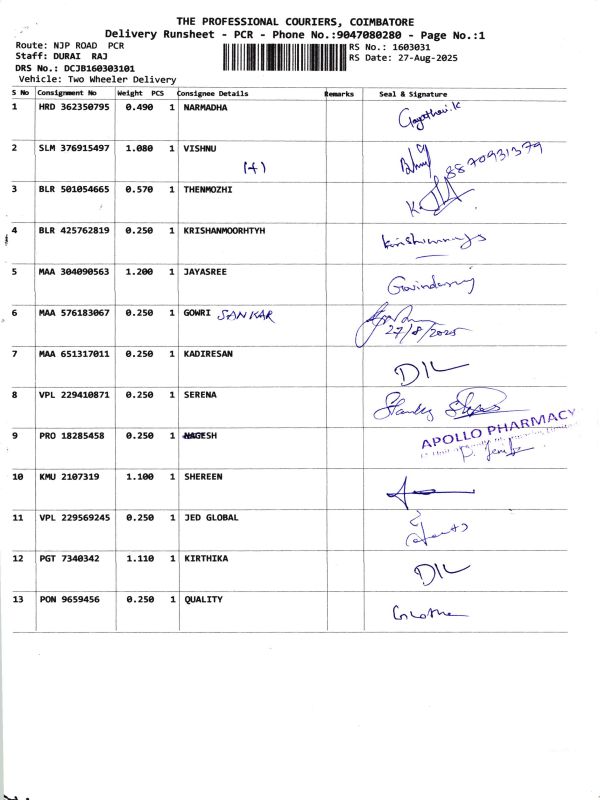 THE PROFESSIONAL COURIERS, COIMBATORE
Delivery Runsheet - PCR - Phone No.:9047080280 - Page No.:1
Route: NJP ROAD PCR RS No.: 1603031
Staff: DURAI RAJ RS Date: 27-Aug-2025
DRS No.: DCJB160303101
Vehicle: Two Wheeler Delivery
S No Consignment No Weight PCS Consignee Details Remarks Seal & Signature
1 HRD 362350795 0.490 1 NARMADHA Gayathari.K
2 SLM 376915497 1.080 1 VISHNU 8870931379
(+)
3 BLR 501054665 0.570 1 THENMOZHI
4 BLR 425762819 0.250 1 KRISHANMOORHTYH
5 MAA 304090563 1.200 1 JAYASREE
6 MAA 576183067 0.250 1 GOWRI SANKAR
27/8/2025
7 MAA 651317011 0.250 1 KADIRESAN DIL
8 VPL 229410871 0.250 1 SERENA Stanley
9 PRO 18285458 0.250 1 NAGESH APOLLO PHARMACY
10 KMU 2107319 1.100 1 SHEREEN
11 VPL 229569245 0.250 1 JED GLOBAL
12 PGT 7340342 1.110 1 KIRTHIKA DIL
13 PON 9659456 0.250 1 QUALITY